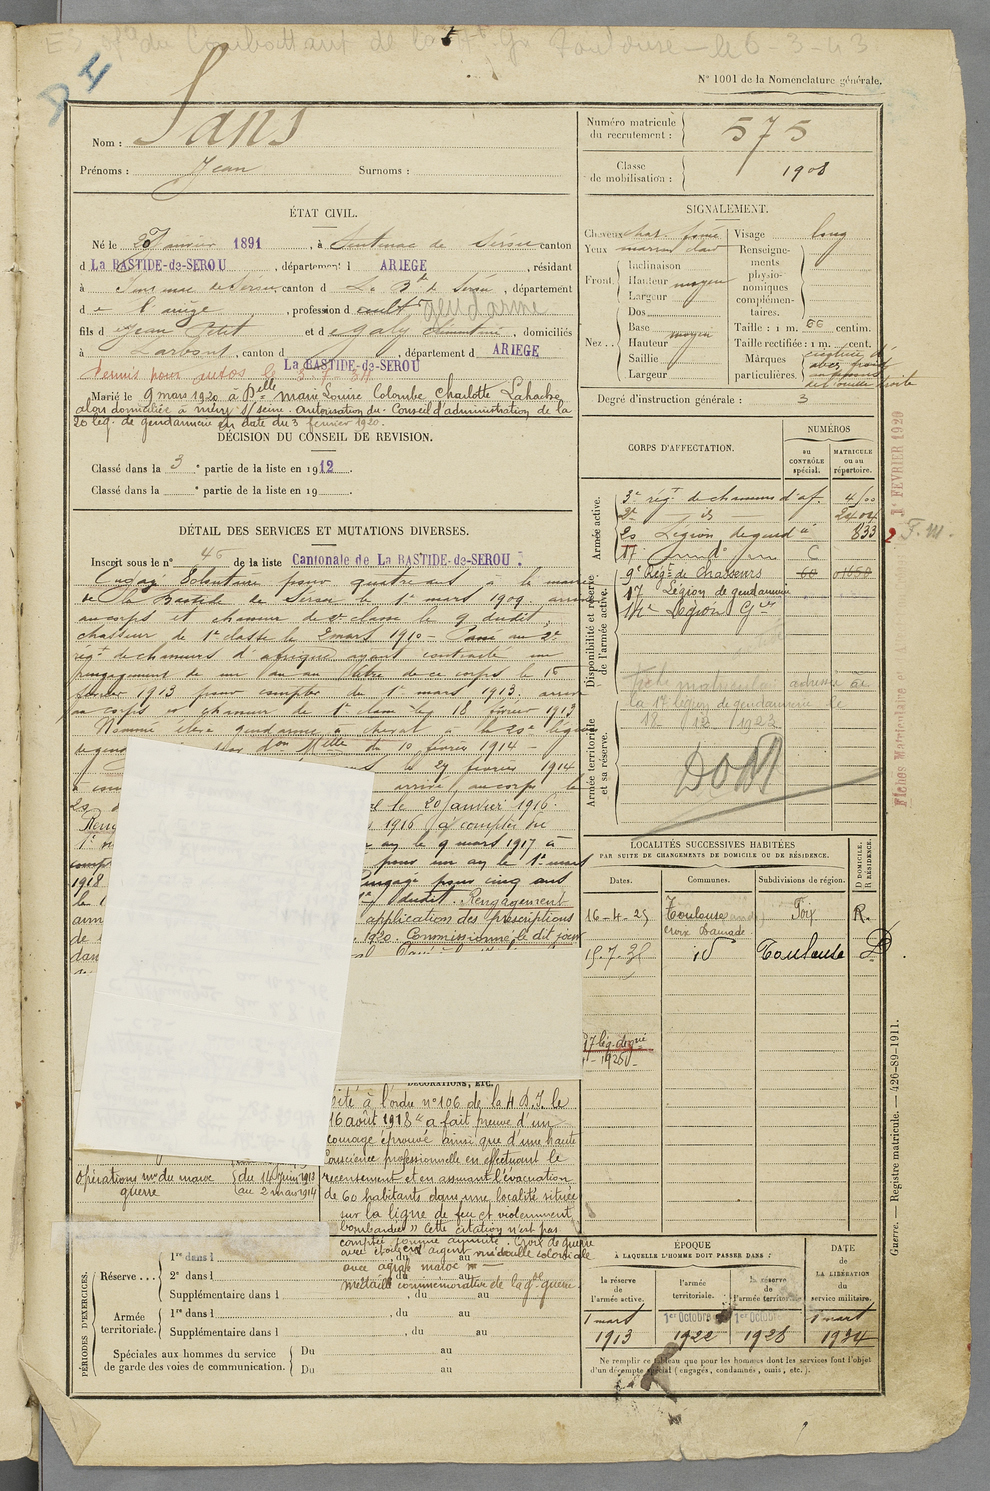 du Combattant de la Toulouse - le 6-3-43
N° 1001 de la Nomenclature générale.
Nom : Sans
Prénoms : Jean Surnoms :
Numéro matricule du recrutement : 575
Classe de mobilisation : 1908
ÉTAT CIVIL.
Né le 20 Janvier 1891, à Sentenac de Sérou canton
d La BASTIDE-de-SEROU, département d ARIEGE, résidant
à Sentenac de Sérou canton d La Bde de Sérou, département
de l'ariège, profession d cult gendarme
fils d Jean Petit et de Galy, domiciliés
à Larbont, canton d La BASTIDE-de-SEROU, département d ARIEGE
Permis pour autos le 3-7-34
Marié le 9 mars 1920 à Delle Marie Louise Colombe Charlotte Lahache
alors domiciliée à Mery s/seine. autorisation du Conseil d'administration de la
20 lég. de gendarmerie en date du 3 février 1920.
DÉCISION DU CONSEIL DE REVISION.
Classé dans la 3e partie de la liste en 1912.
Classé dans la e partie de la liste en 19 .
DÉTAIL DES SERVICES ET MUTATIONS DIVERSES.
Inscrit sous le n° 46 de la liste Cantonale de La BASTIDE-de-SEROU.
Engagé Volontaire pour quatre ans à la mairie
de la Bastide de Sérou le 1er mars 1909. arrivé
au corps et chasseur de 2e classe le 9 dudit,
chasseur de 1e classe le 2 mars 1910 - Passé au 2e
régt de chasseurs d'afrique ayant contracté un
rengagement de un an au titre de ce corps le 15
février 1913 pour compter du 1er mars 1913. arrivé
au corps et chasseur de 1e classe le 18 février 1913
Nommé élève gendarme à cheval à la 20e légion
de gend don Mlle du 10 février 1914 -
le 27 février 1914
arrivé au corps le
20 le 20 janvier 1916.
Reng 1916 à compter du
1er an le 9 mars 1917 à
compt pour un an le 1er mars
1918 engagé pour cinq ans
le dudit. Rengagement
application des prescriptions
de 1920. Commissionné le dit jour
dan
DÉCORATIONS, ETC.
Cité à l'ordre n° 106 de la 4 D.I. le
16 août 1918 "a fait preuve d'un
courage éprouvé ainsi que d'une haute
conscience professionnelle en effectuant le
recensement et en assurant l'évacuation
de 60 habitants dans une localité située
sur la ligne de feu et violemment
bombardée" Cette citation n'est pas
comptée comme annuité. Croix de guerre
avec étoile en argent médaille coloniale
avec agrafe maroc
médaille commémorative de la gde guerre
opérations mres du maroc
guerre
du 14 juin 1913
au 2 mars 1914
PÉRIODES D'EXERCICES.
Réserve...
1re dans l , du au
2e dans l , du au
Supplémentaire dans l , du au
Armée territoriale.
1re dans l , du au
Supplémentaire dans l , du au
Spéciales aux hommes du service de garde des voies de communication.
Du au
Du au
SIGNALEMENT.
Cheveux chat. foncé
Yeux marron clair
Front. Inclinaison
Hauteur moyen
Largeur
Nez.. Dos
Base
Hauteur moyen
Saillie
Largeur
Visage long
Renseignements physionomiques complémentaires.
Taille : 1 m. 66 centim.
Taille rectifiée : 1 m. cent.
Marques particulières.
Degré d'instruction générale : 3
CORPS D'AFFECTATION.
NUMÉROS
au CONTRÔLE spécial.
MATRICULE ou au répertoire.
Armée active.
3e régt de chasseurs d'af. 4100
2e id 2404
20 Légion de gend 833
17
Disponibilité et réserve de l'armée active.
9e Régt de Chasseurs
17 Légion de gendarmerie
14e Légion Gie
Armée territoriale et sa réserve.
Fiche matriculaire adressée à
la 17 légion de gendarmerie le
18 12 1923
DOM
1er FEVRIER 1920
Fiches Matriculaire et
LOCALITÉS SUCCESSIVES HABITÉES
PAR SUITE DE CHANGEMENTS DE DOMICILE OU DE RÉSIDENCE.
Dates. Communes. Subdivisions de région. D DOMICILE. R RÉSIDENCE.
16-4-25 Toulouse Croix Daurade Foix R.
15.7.35 id Toulouse D.
Guerre. — Registre matricule. — 426-89-1911.
ÉPOQUE
À LAQUELLE L'HOMME DOIT PASSER DANS :
la réserve de l'armée active.
l'armée territoriale.
la réserve de l'armée territoriale
DATE de LA LIBÉRATION du service militaire.
1 mars 1913
1er Octobre 1922
1er Octobre 1928
1 mars 1934
Ne remplir ce tableau que pour les hommes dont les services font l'objet
d'un décompte spécial (engagés, condamnés, omis, etc.).